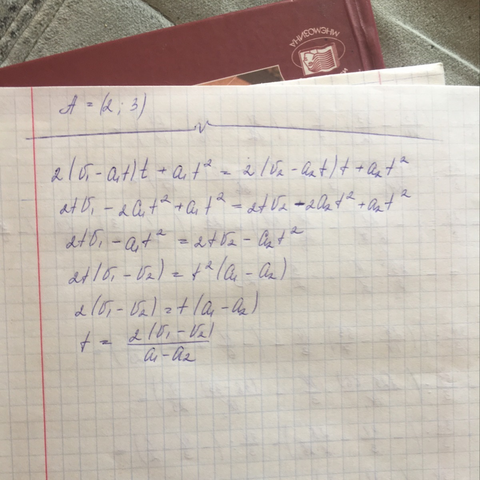 МНЕМОЗИНА
A = (2; 3)
2(v₁ - a₁t)t + a₁t² = 2(v₂ - a₂t)t + a₂t²
2tv₁ - 2a₁t² + a₁t² = 2tv₂ - 2a₂t² + a₂t²
2tv₁ - a₁t² = 2tv₂ - a₂t²
2t(v₁ - v₂) = t²(a₁ - a₂)
2(v₁ - v₂) = t(a₁ - a₂)
t = 2(v₁ - v₂) / a₁ - a₂